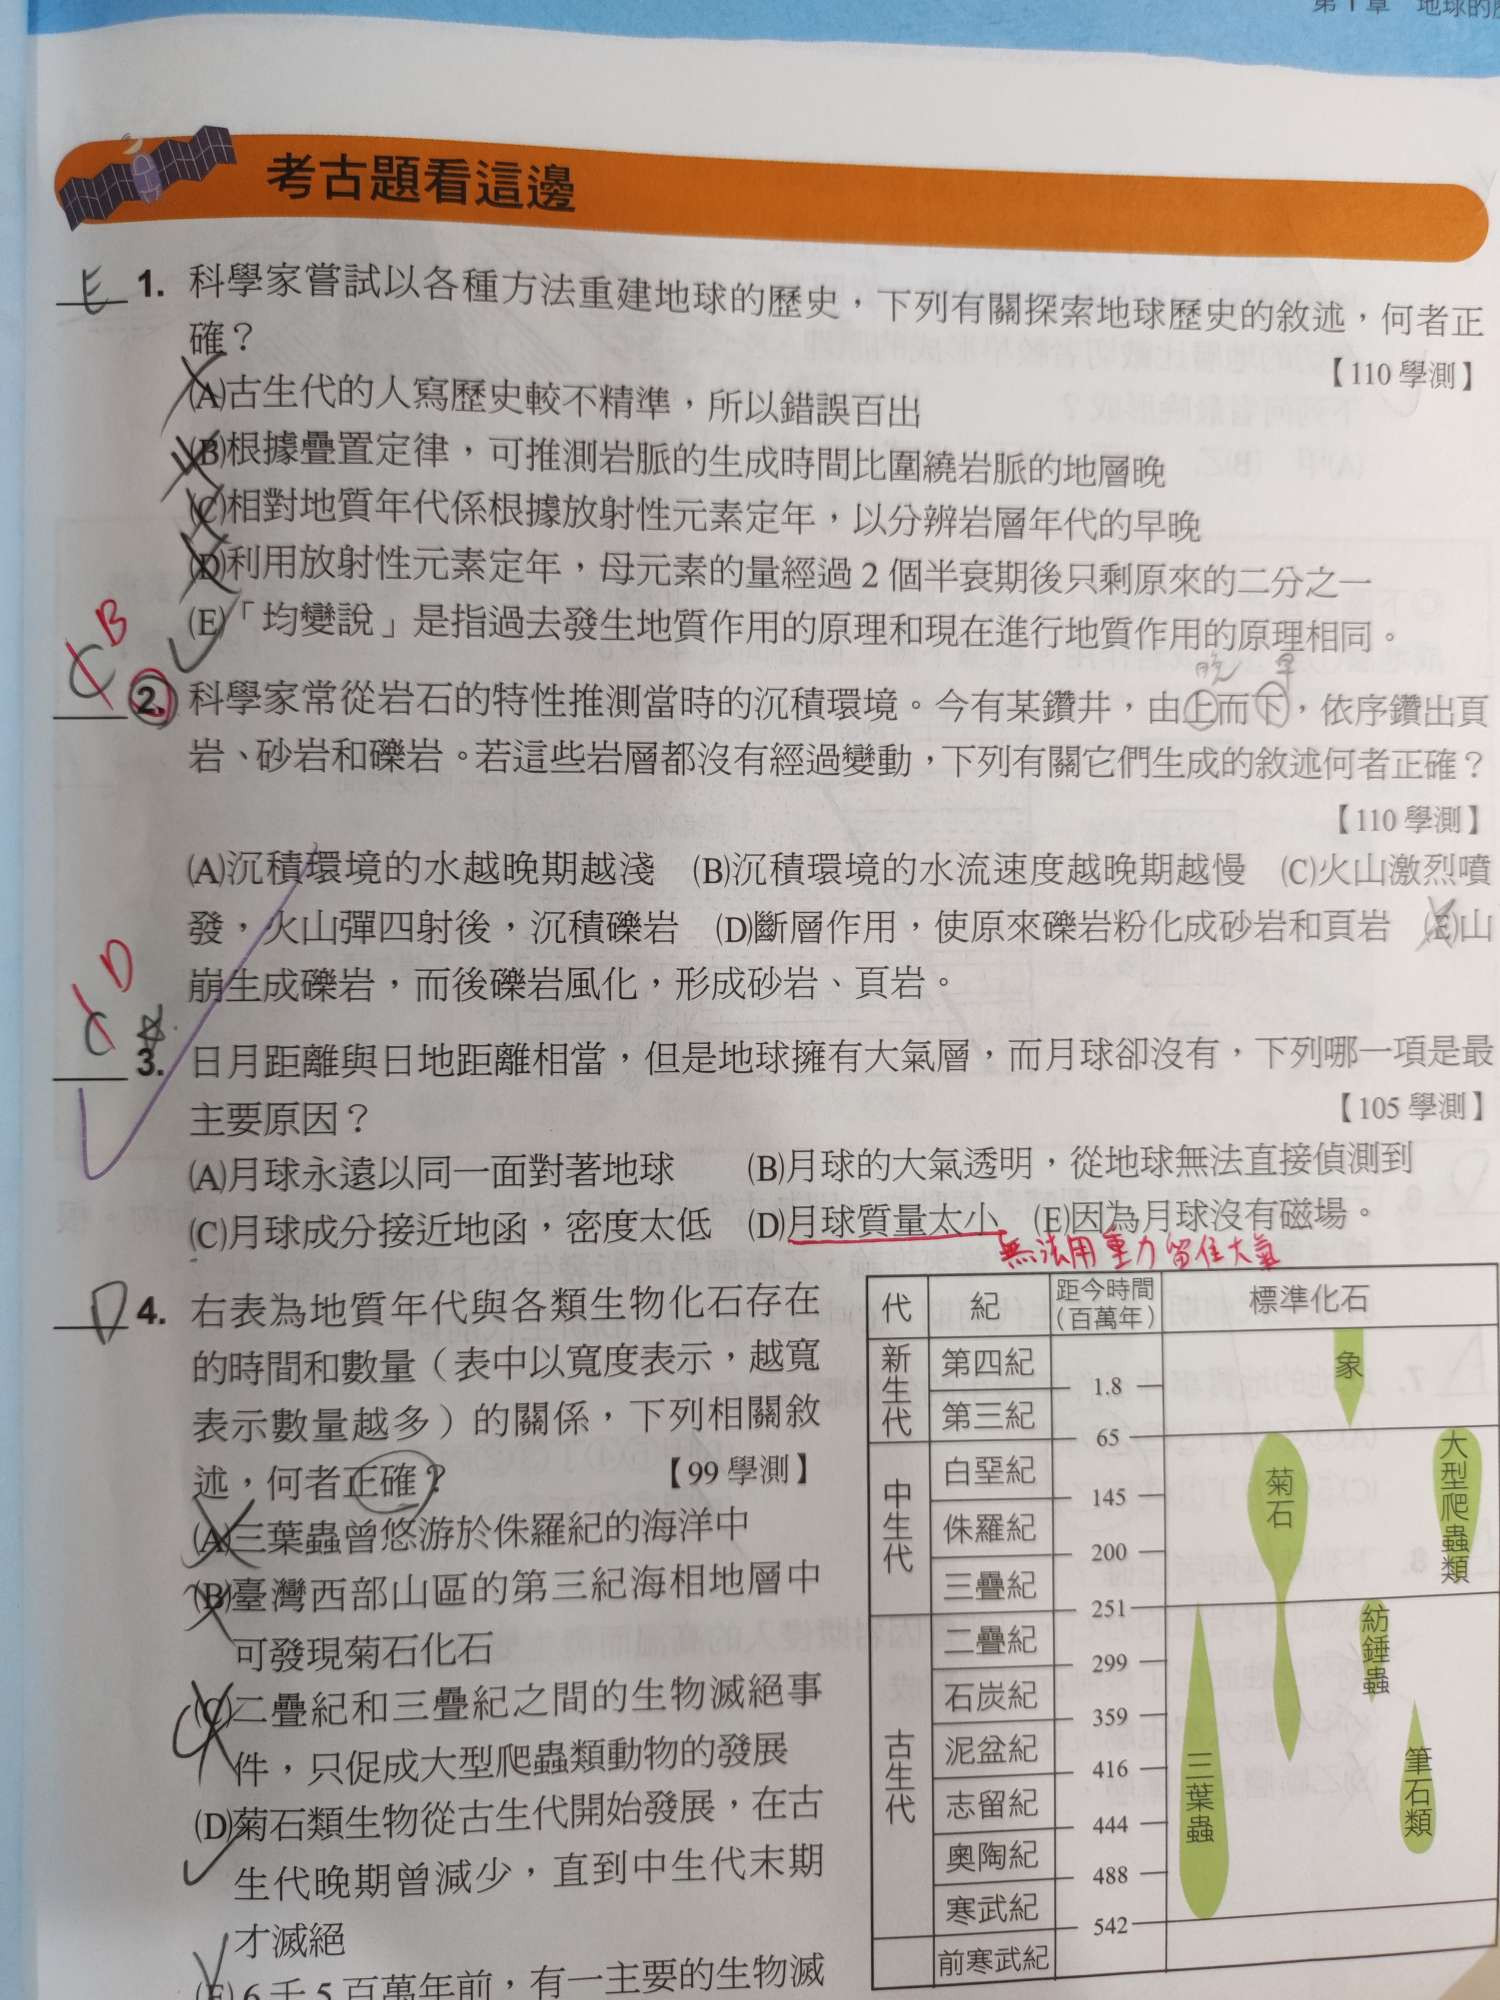 第1章 地球的
考古題看這邊
E 1. 科學家嘗試以各種方法重建地球的歷史，下列有關探索地球歷史的敘述，何者正
確？
【110 學測】
(A)古生代的人寫歷史較不精準，所以錯誤百出
(B)根據疊置定律，可推測岩脈的生成時間比圍繞岩脈的地層晚
(C)相對地質年代係根據放射性元素定年，以分辨岩層年代的早晚
(D)利用放射性元素定年，母元素的量經過 2 個半衰期後只剩原來的二分之一
(E)「均變說」是指過去發生地質作用的原理和現在進行地質作用的原理相同。
晚 早
C B 2. 科學家常從岩石的特性推測當時的沉積環境。今有某鑽井，由上而下，依序鑽出頁
岩、砂岩和礫岩。若這些岩層都沒有經過變動，下列有關它們生成的敘述何者正確？
【110 學測】
(A)沉積環境的水越晚期越淺 (B)沉積環境的水流速度越晚期越慢 (C)火山激烈噴
發，火山彈四射後，沉積礫岩 (D)斷層作用，使原來礫岩粉化成砂岩和頁岩 (E)山
崩生成礫岩，而後礫岩風化，形成砂岩、頁岩。
C D 3. 日月距離與日地距離相當，但是地球擁有大氣層，而月球卻沒有，下列哪一項是最
主要原因？
【105 學測】
(A)月球永遠以同一面對著地球 (B)月球的大氣透明，從地球無法直接偵測到
(C)月球成分接近地函，密度太低 (D)月球質量太小 (E)因為月球沒有磁場。
無法用重力留住大氣
D 4. 右表為地質年代與各類生物化石存在
的時間和數量（表中以寬度表示，越寬
表示數量越多）的關係，下列相關敘
述，何者正確？ 【99 學測】
(A)三葉蟲曾悠游於侏羅紀的海洋中
(B)臺灣西部山區的第三紀海相地層中
可發現菊石化石
(C)二疊紀和三疊紀之間的生物滅絕事
件，只促成大型爬蟲類動物的發展
(D)菊石類生物從古生代開始發展，在古
生代晚期曾減少，直到中生代末期
才滅絕
(E) 6 千 5 百萬年前，有一主要的生物滅
代 紀 距今時間（百萬年） 標準化石
新生代 第四紀 象
1.8
第三紀
65
中生代 白堊紀 菊石 大型爬蟲類
145
侏羅紀
200
三疊紀
251
古生代 二疊紀 紡錘蟲
299
石炭紀
359
泥盆紀 三葉蟲 筆石類
416
志留紀
444
奧陶紀
488
寒武紀
542
前寒武紀